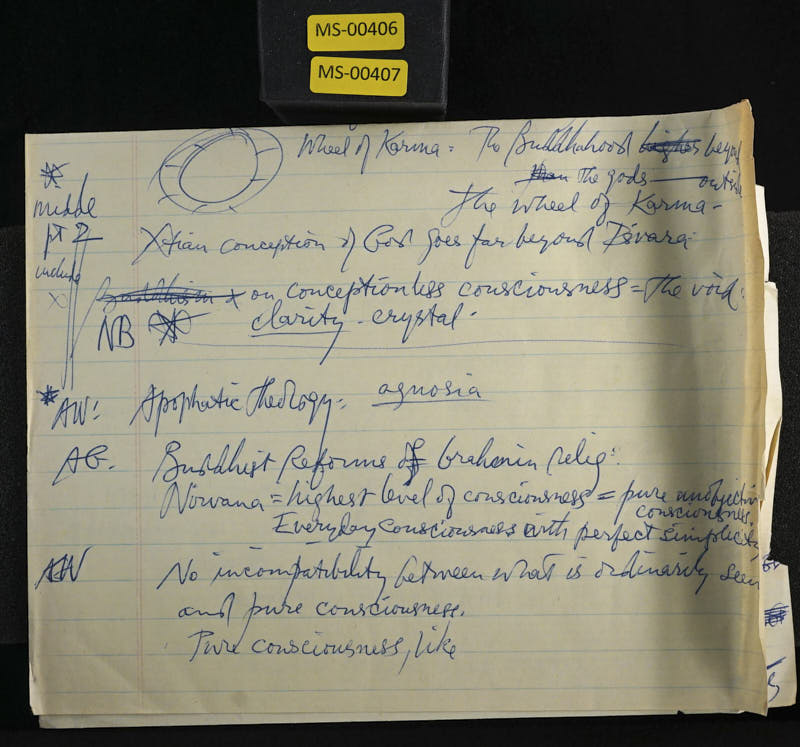 MS-00406
MS-00407
Wheel of Karma = The Buddhahood higher beyond
than the gods — outside
the wheel of Karma -
* middle
pt 2
include
X
Xtian conception of God goes far beyond Isvara -
Buddhism x on conceptionless consciousness = the void.
NB clarity - crystal.
* AW: Apophatic Theology = agnosia
AG. Buddhist Reforms of brahmin relig:
Nirvana = highest level of consciousness = pure
consciousness.
Everyday consciousness with perfect simplicity
AW No incompatibility between what is ordinarily seen
and pure consciousness.
Pure consciousness, like